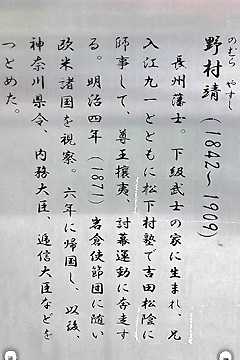 のむら やすし
野村靖(1842~1909)
長州藩士。下級武士の家に生まれ、兄
入江九一とともに松下村塾で吉田松陰に
師事して、尊王攘夷、討幕運動に奔走す
る。明治四年(1871)岩倉使節団に随い
欧米諸国を視察。六年に帰国し、以後、
神奈川県令、内務大臣、逓信大臣などを
つとめた。